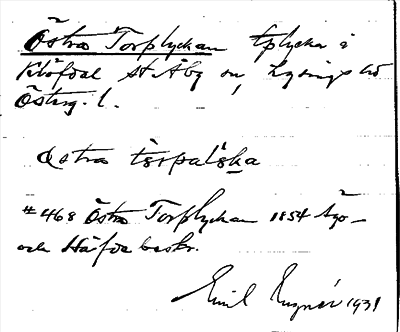 Östra Torplyckan tplycka i
Klöfdal St. Åby sn, Lysings hd
Österg. l.
östra tɜrpalʹska
# 468 Östra Torplyckan 1854 Ägo-
och Häfda beskr.
Emil 1931